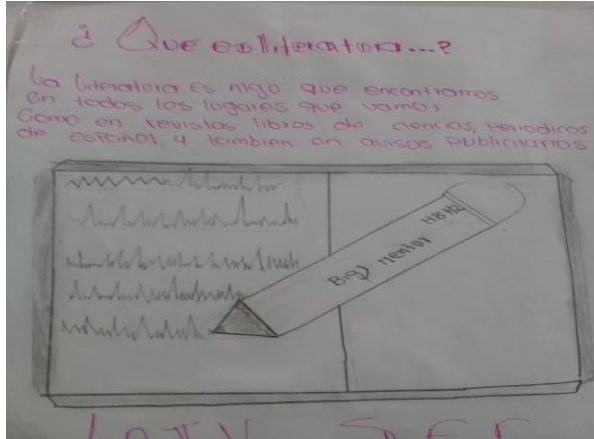 ¿ Que es literatura...?
La Literatura Es Algo que encontramos
En todos los lugares que vamos
Como en revistas libros de ciencias, periodicos
de ESPAÑOL, y tambien en avisos PUBLICITARIOS
HB H2
Big) mentor